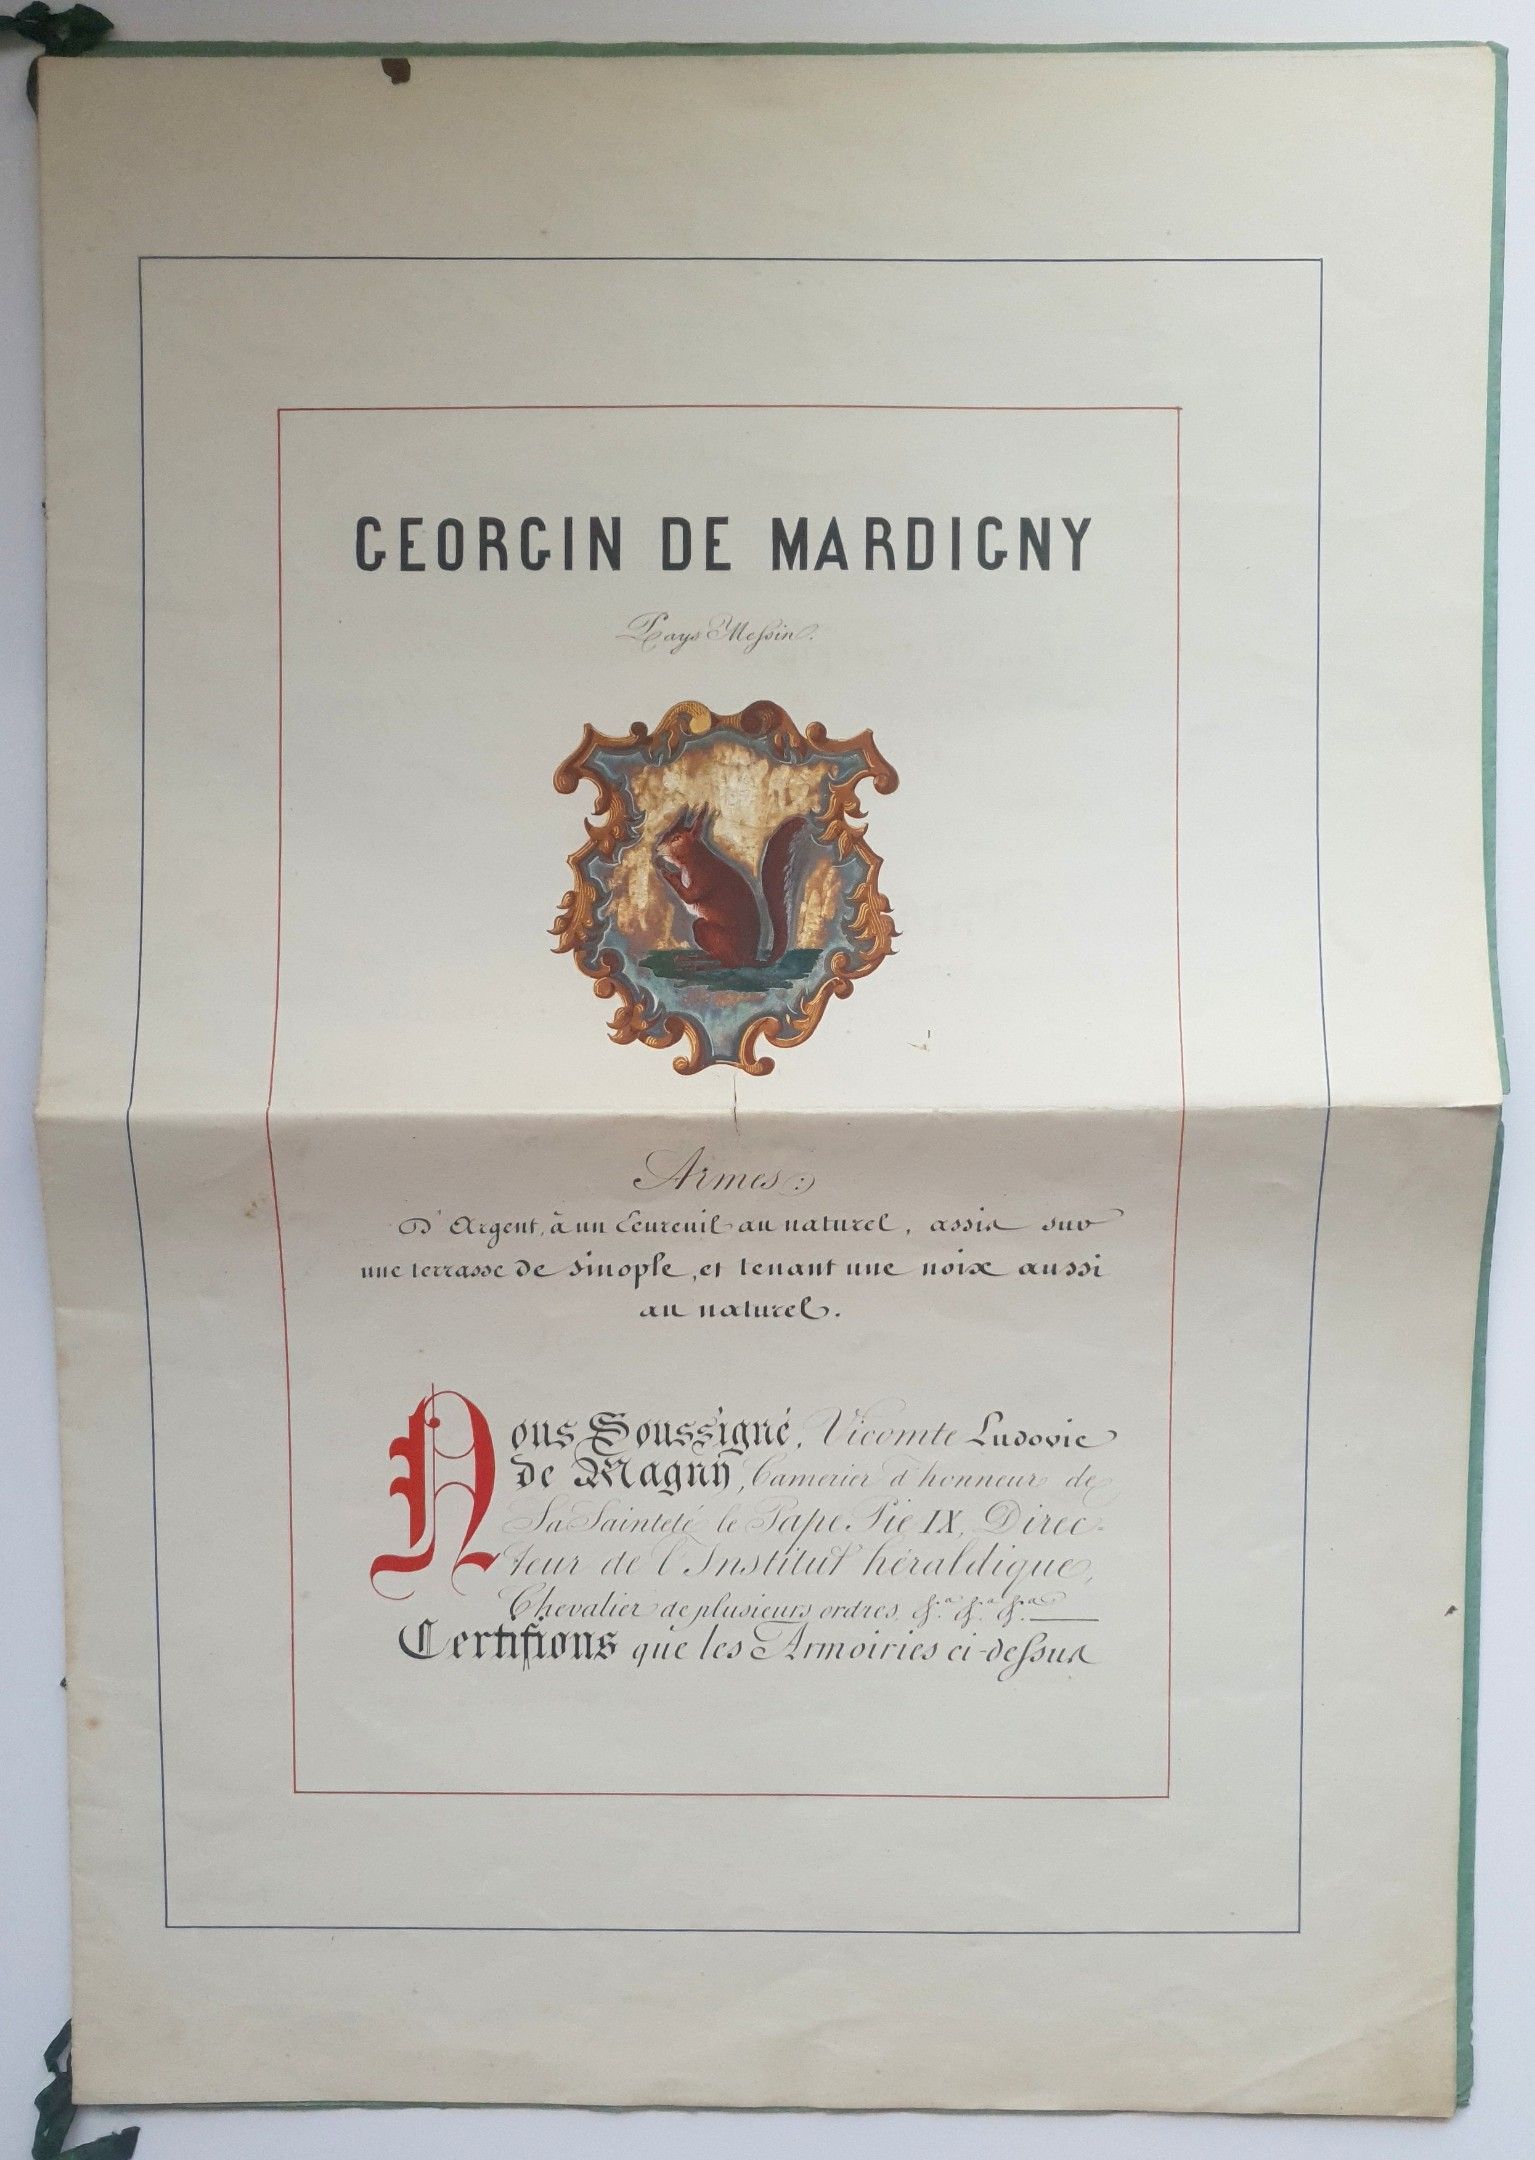 GEORGIN DE MARDIGNY
Pays Messin.
Armes :
D'Argent, à un Écureuil au naturel, assis sur
une terrasse de sinople, et tenant une noix aussi
au naturel.
Nous Soussigné, Vicomte Ludovic
de Magny, Camérier d'honneur de
Sa Sainteté le Pape Pie IX, Direc-
teur de l'Institut héraldique,
Chevalier de plusieurs ordres, &.a &.a &.a
Certifions que les Armoiries ci-dessus